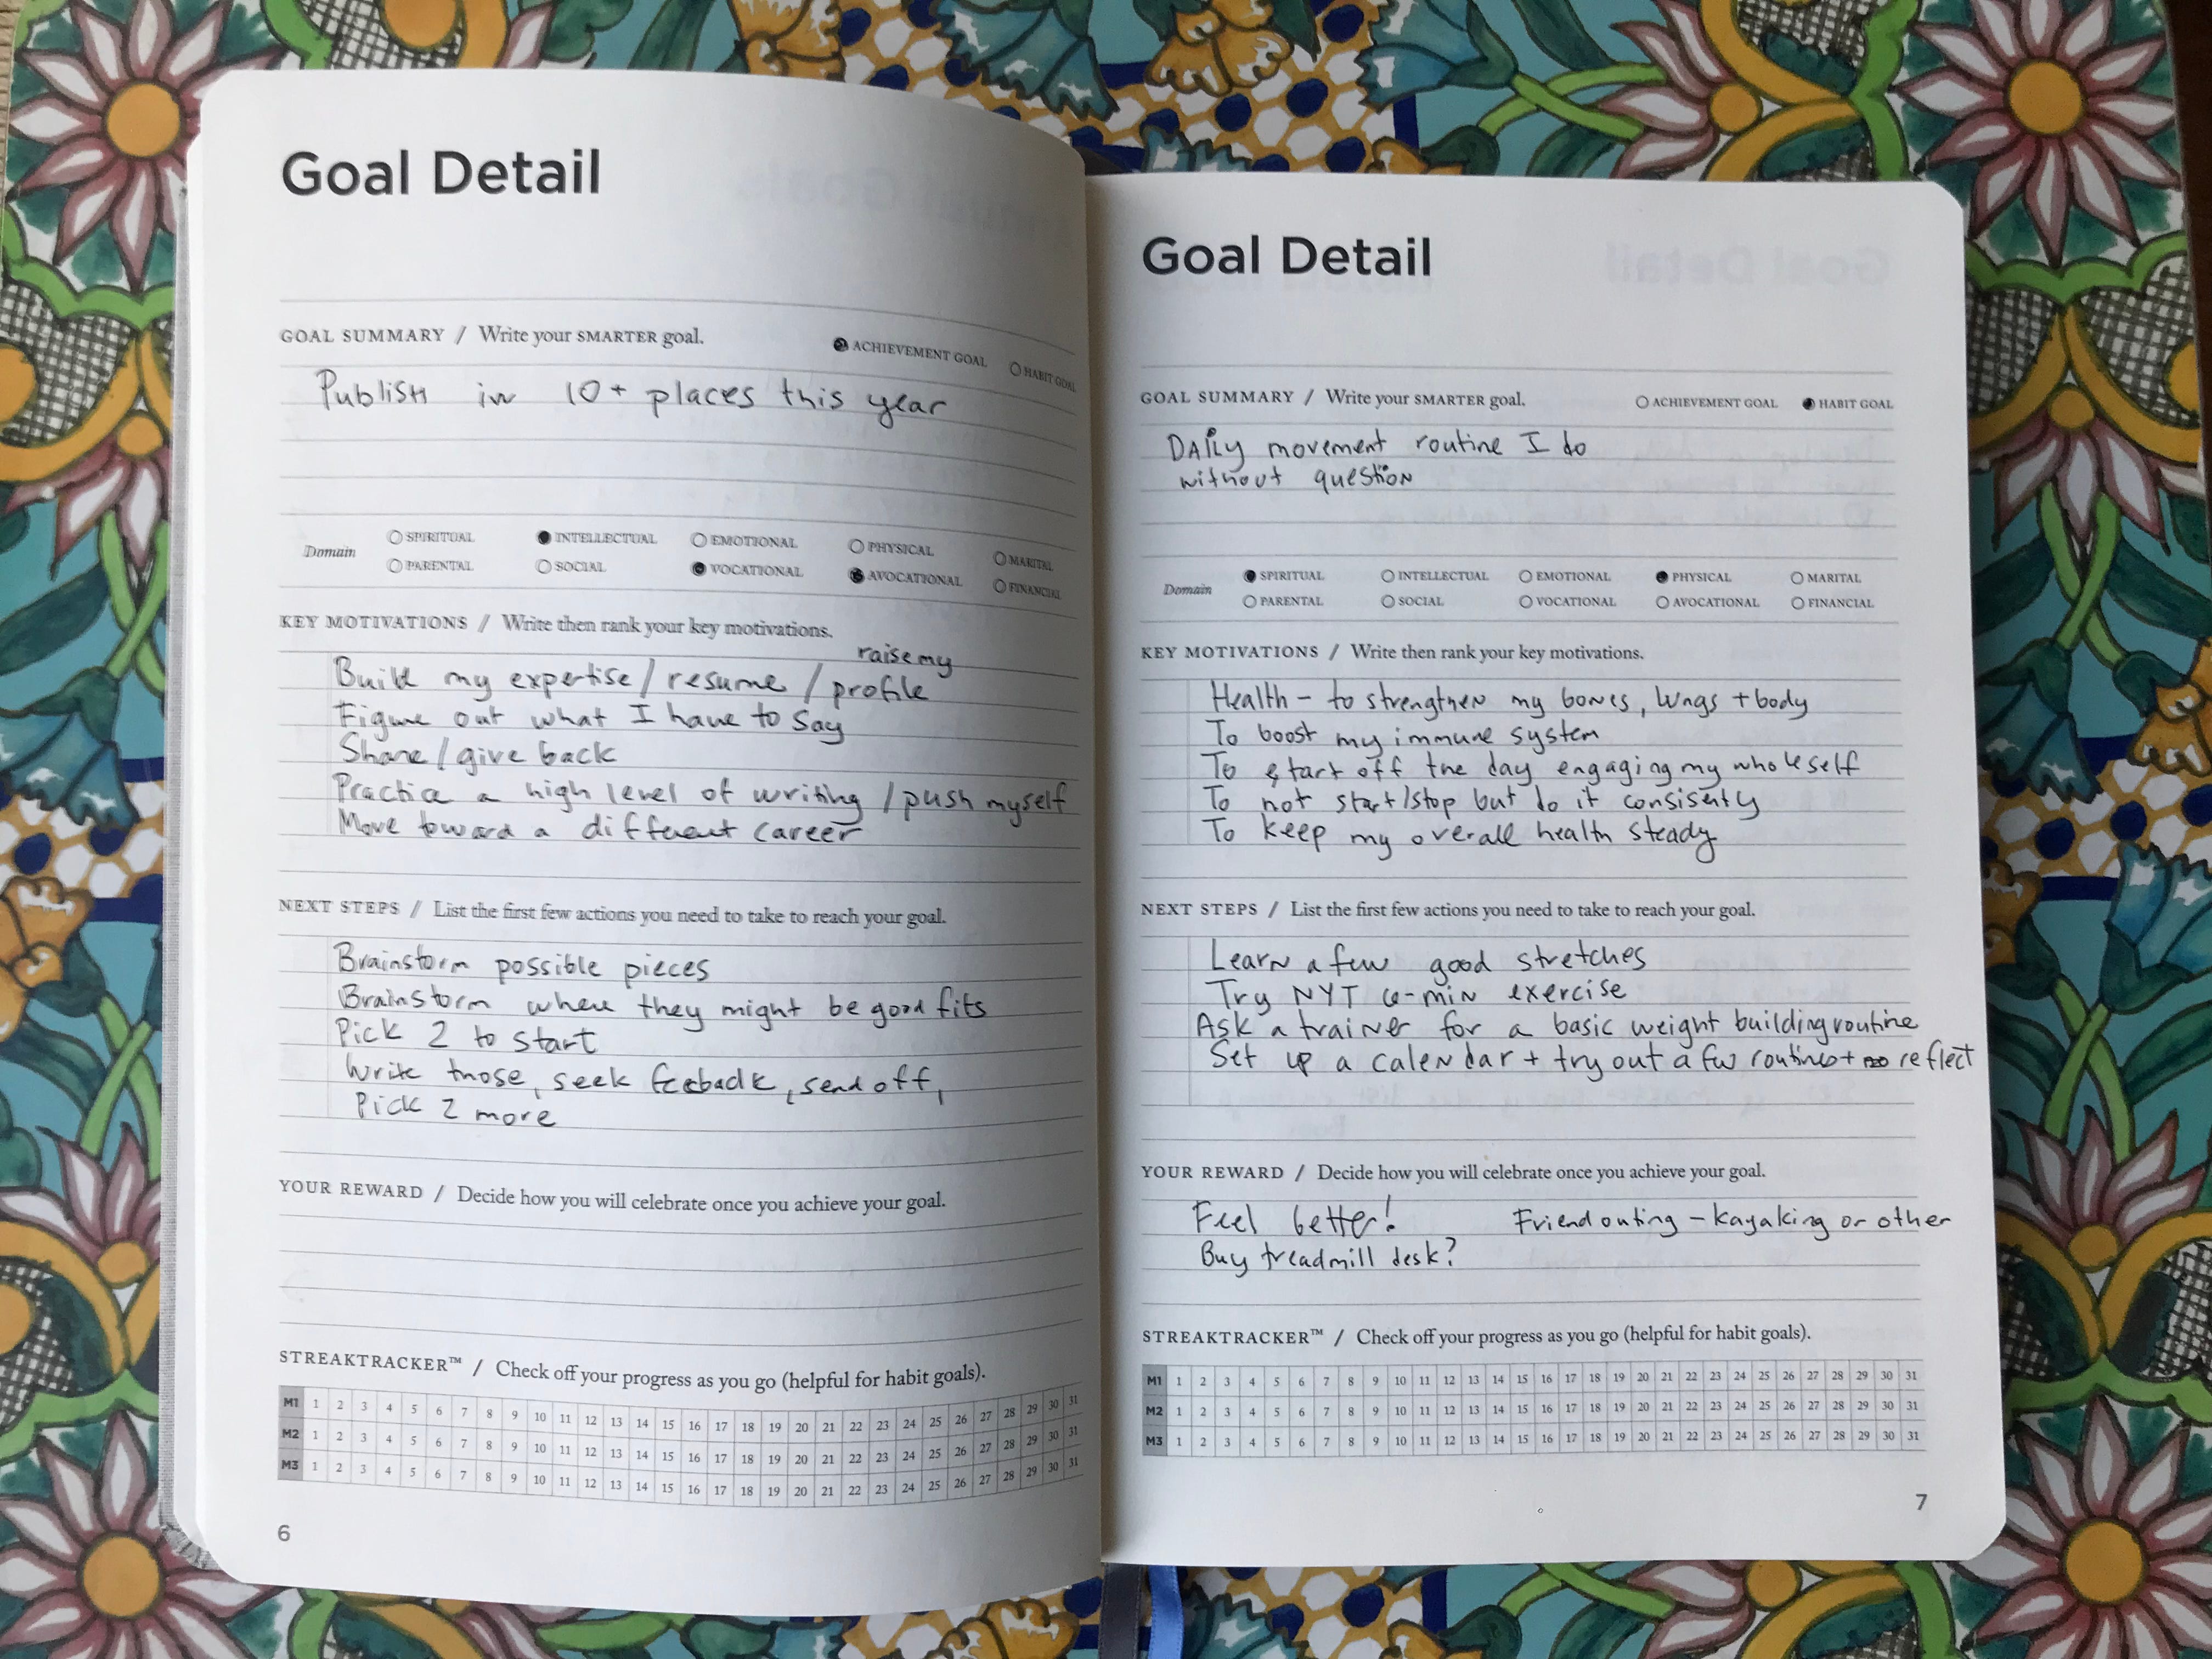 Goal Detail
GOAL SUMMARY / Write your SMARTER goal.
ACHIEVEMENT GOAL
HABIT GOAL
Publish in 10+ places this year
Domain
SPIRITUAL INTELLECTUAL EMOTIONAL PHYSICAL MARITAL
PARENTAL SOCIAL VOCATIONAL AVOCATIONAL FINANCIAL
KEY MOTIVATIONS / Write then rank your key motivations.
raise my
Build my expertise / resume / profile
Figure out what I have to say
Share / give back
Practice a high level of writing / push myself
Move toward a different career
NEXT STEPS / List the first few actions you need to take to reach your goal.
Brainstorm possible pieces
Brainstorm where they might be good fits
Pick 2 to start
Write those, seek feeback, send off,
Pick 2 more
YOUR REWARD / Decide how you will celebrate once you achieve your goal.
STREAKTRACKER™ / Check off your progress as you go (helpful for habit goals).
M1 1 2 3 4 5 6 7 8 9 10 11 12 13 14 15 16 17 18 19 20 21 22 23 24 25 26 27 28 29 30 31
M2 1 2 3 4 5 6 7 8 9 10 11 12 13 14 15 16 17 18 19 20 21 22 23 24 25 26 27 28 29 30 31
M3 1 2 3 4 5 6 7 8 9 10 11 12 13 14 15 16 17 18 19 20 21 22 23 24 25 26 27 28 29 30 31
6
Goal Detail
GOAL SUMMARY / Write your SMARTER goal.
ACHIEVEMENT GOAL HABIT GOAL
DAily movement routine I do
without question
Domain
SPIRITUAL INTELLECTUAL EMOTIONAL PHYSICAL MARITAL
PARENTAL SOCIAL VOCATIONAL AVOCATIONAL FINANCIAL
KEY MOTIVATIONS / Write then rank your key motivations.
Health - to strengthen my bones, lungs + body
To boost my immune system
To start off the day engaging my whole self
To not start/stop but do it consisently
To keep my overall health steady
NEXT STEPS / List the first few actions you need to take to reach your goal.
Learn a few good stretches
Try NYT 6-min exercise
Ask a trainer for a basic weight building routine
Set up a calendar + try out a fw routines + reflect
YOUR REWARD / Decide how you will celebrate once you achieve your goal.
Feel better! Friend outing - kayaking or other
Buy treadmill desk?
STREAKTRACKER™ / Check off your progress as you go (helpful for habit goals).
M1 1 2 3 4 5 6 7 8 9 10 11 12 13 14 15 16 17 18 19 20 21 22 23 24 25 26 27 28 29 30 31
M2 1 2 3 4 5 6 7 8 9 10 11 12 13 14 15 16 17 18 19 20 21 22 23 24 25 26 27 28 29 30 31
M3 1 2 3 4 5 6 7 8 9 10 11 12 13 14 15 16 17 18 19 20 21 22 23 24 25 26 27 28 29 30 31
7